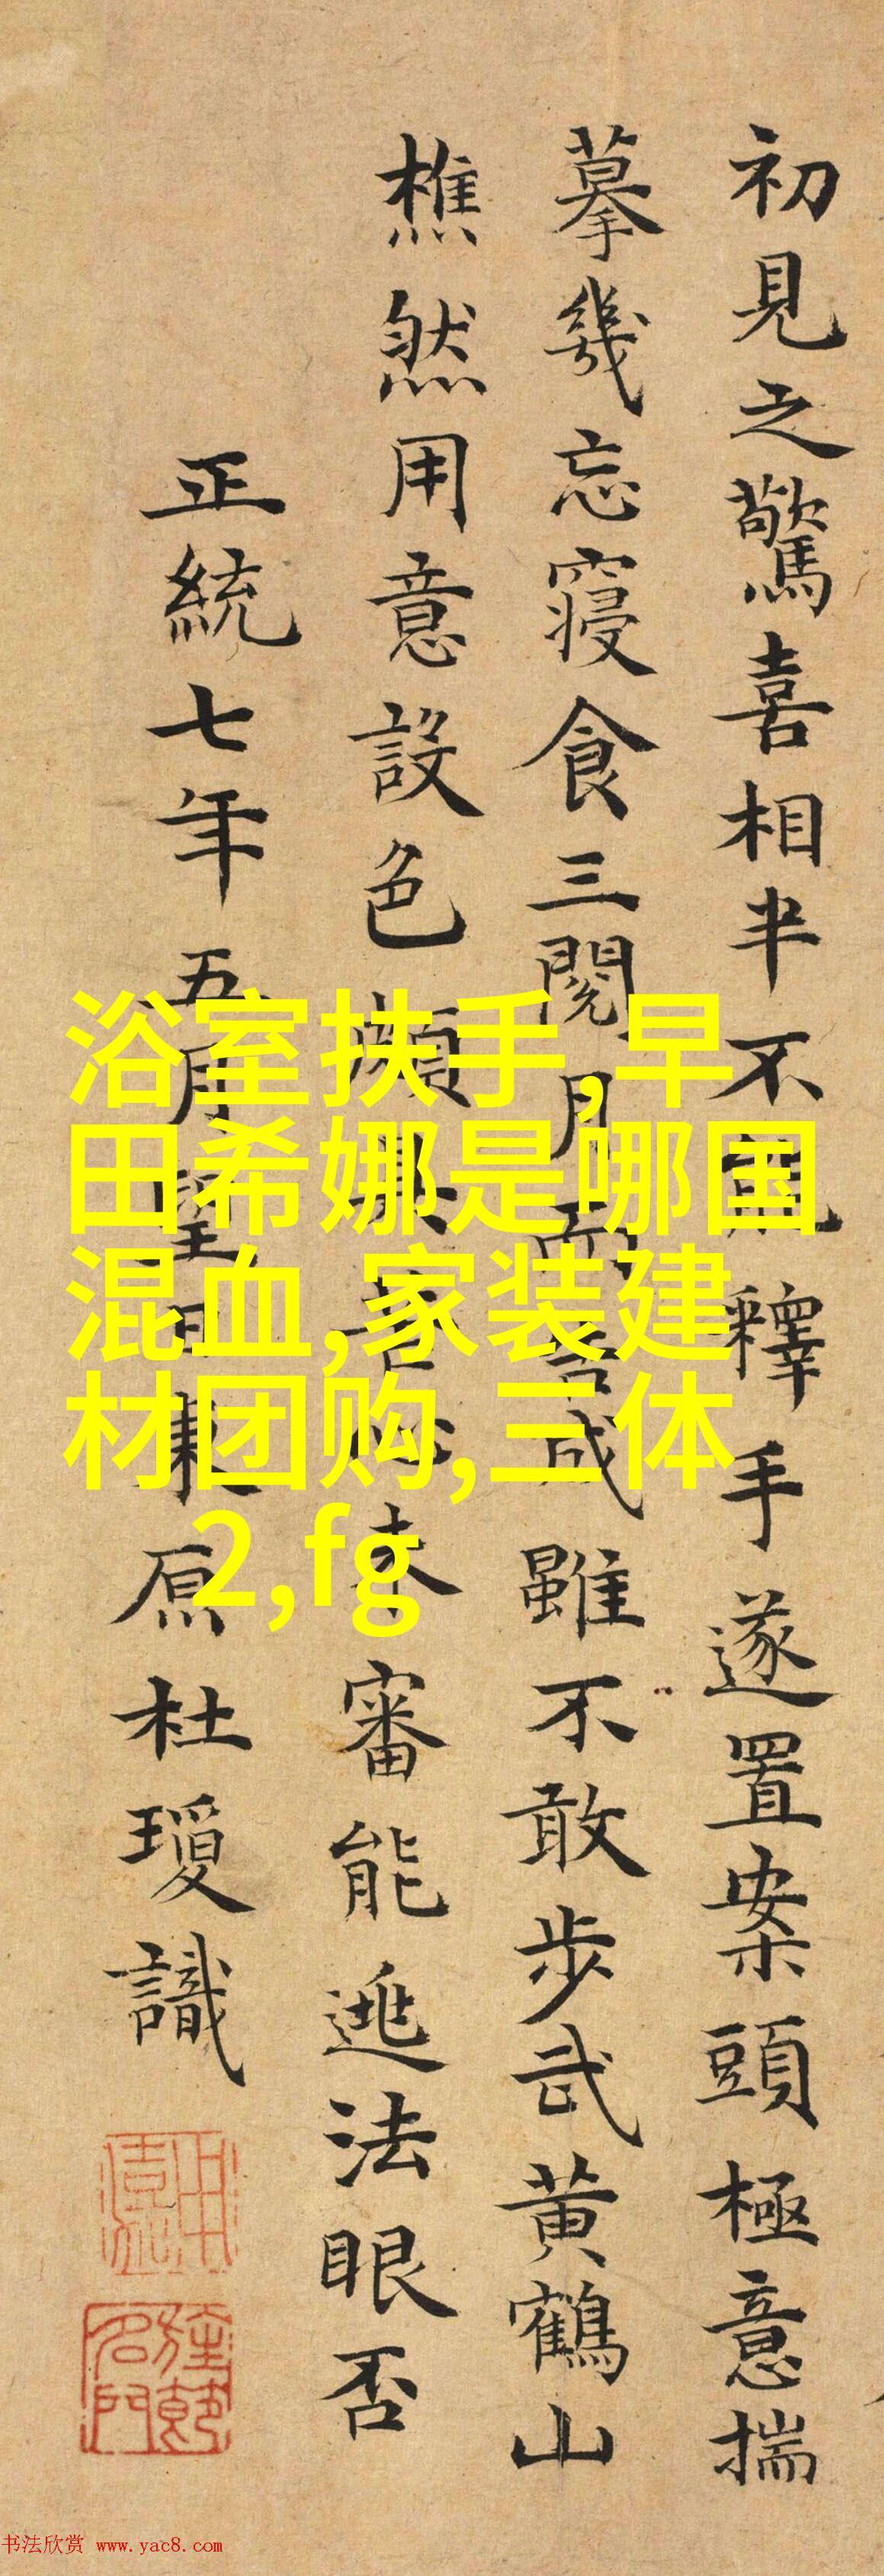 初見之驚喜相半不䏻釋手遂置案頭極意揣
摹幾忘寢食三閱月而告成雖不敢步武黄鶴山
樵然用意設色頗具苦心未審能逃法眼否
正統七年五月望日東原杜瓊識
浴室扶手,早
田希娜是哪国
混血,家装建
材团购,三体
2,fg
书法欣赏 www.yac8.com